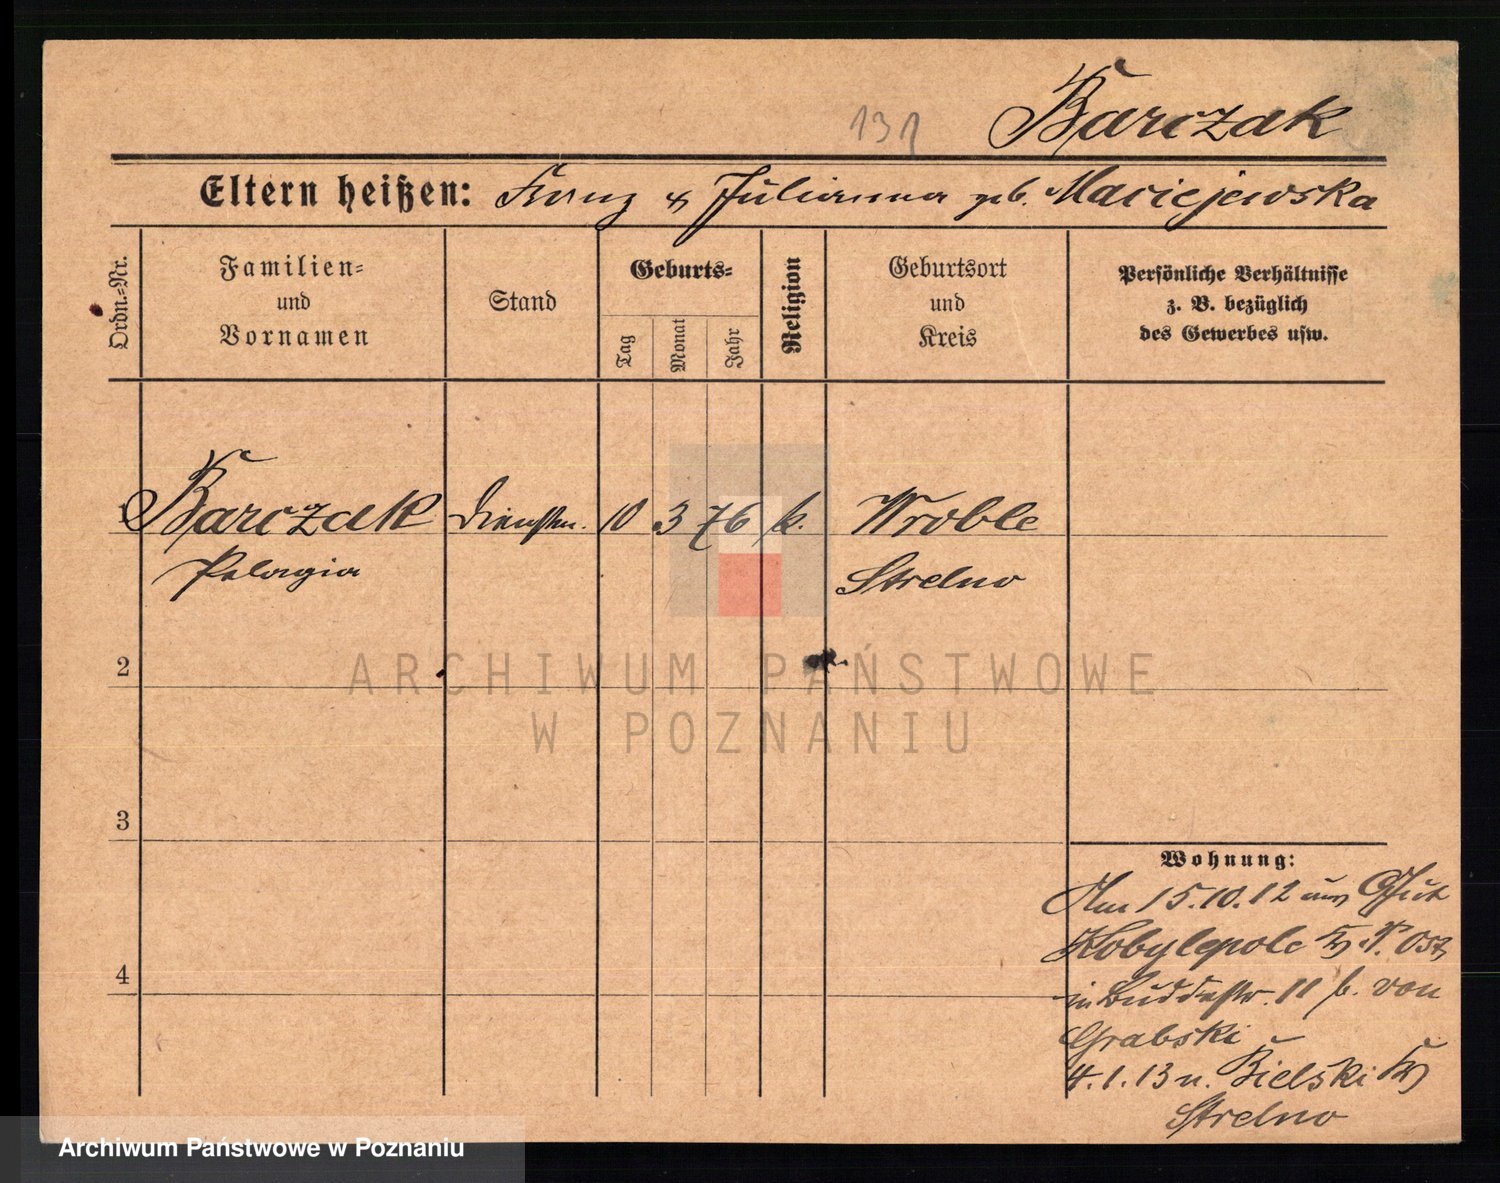 131 Barczak
Eltern heißen: Franz & Julianna geb. Maciejewska
Ordn.=Nr.
Familien=
und
Vornamen
Stand
Geburts=
Tag
Monat
Jahr
Religion
Geburtsort
und
Kreis
Persönliche Verhältnisse
z. B. bezüglich
des Gewerbes usw.
1 Barczak Dienstm. 10 3 76 k. Wroble
Pelagia Strelno
2
ARCHIWUM PAŃSTWOWE
W POZNANIU
3
4
Wohnung:
Am 15.10.12 aus Gut
Kobylepole Kr. P. Ost
in Buddestr. 11 b. von
Grabski
4.1.13 n. Bielski Kr
Strelno
Archiwum Państwowe w Poznaniu